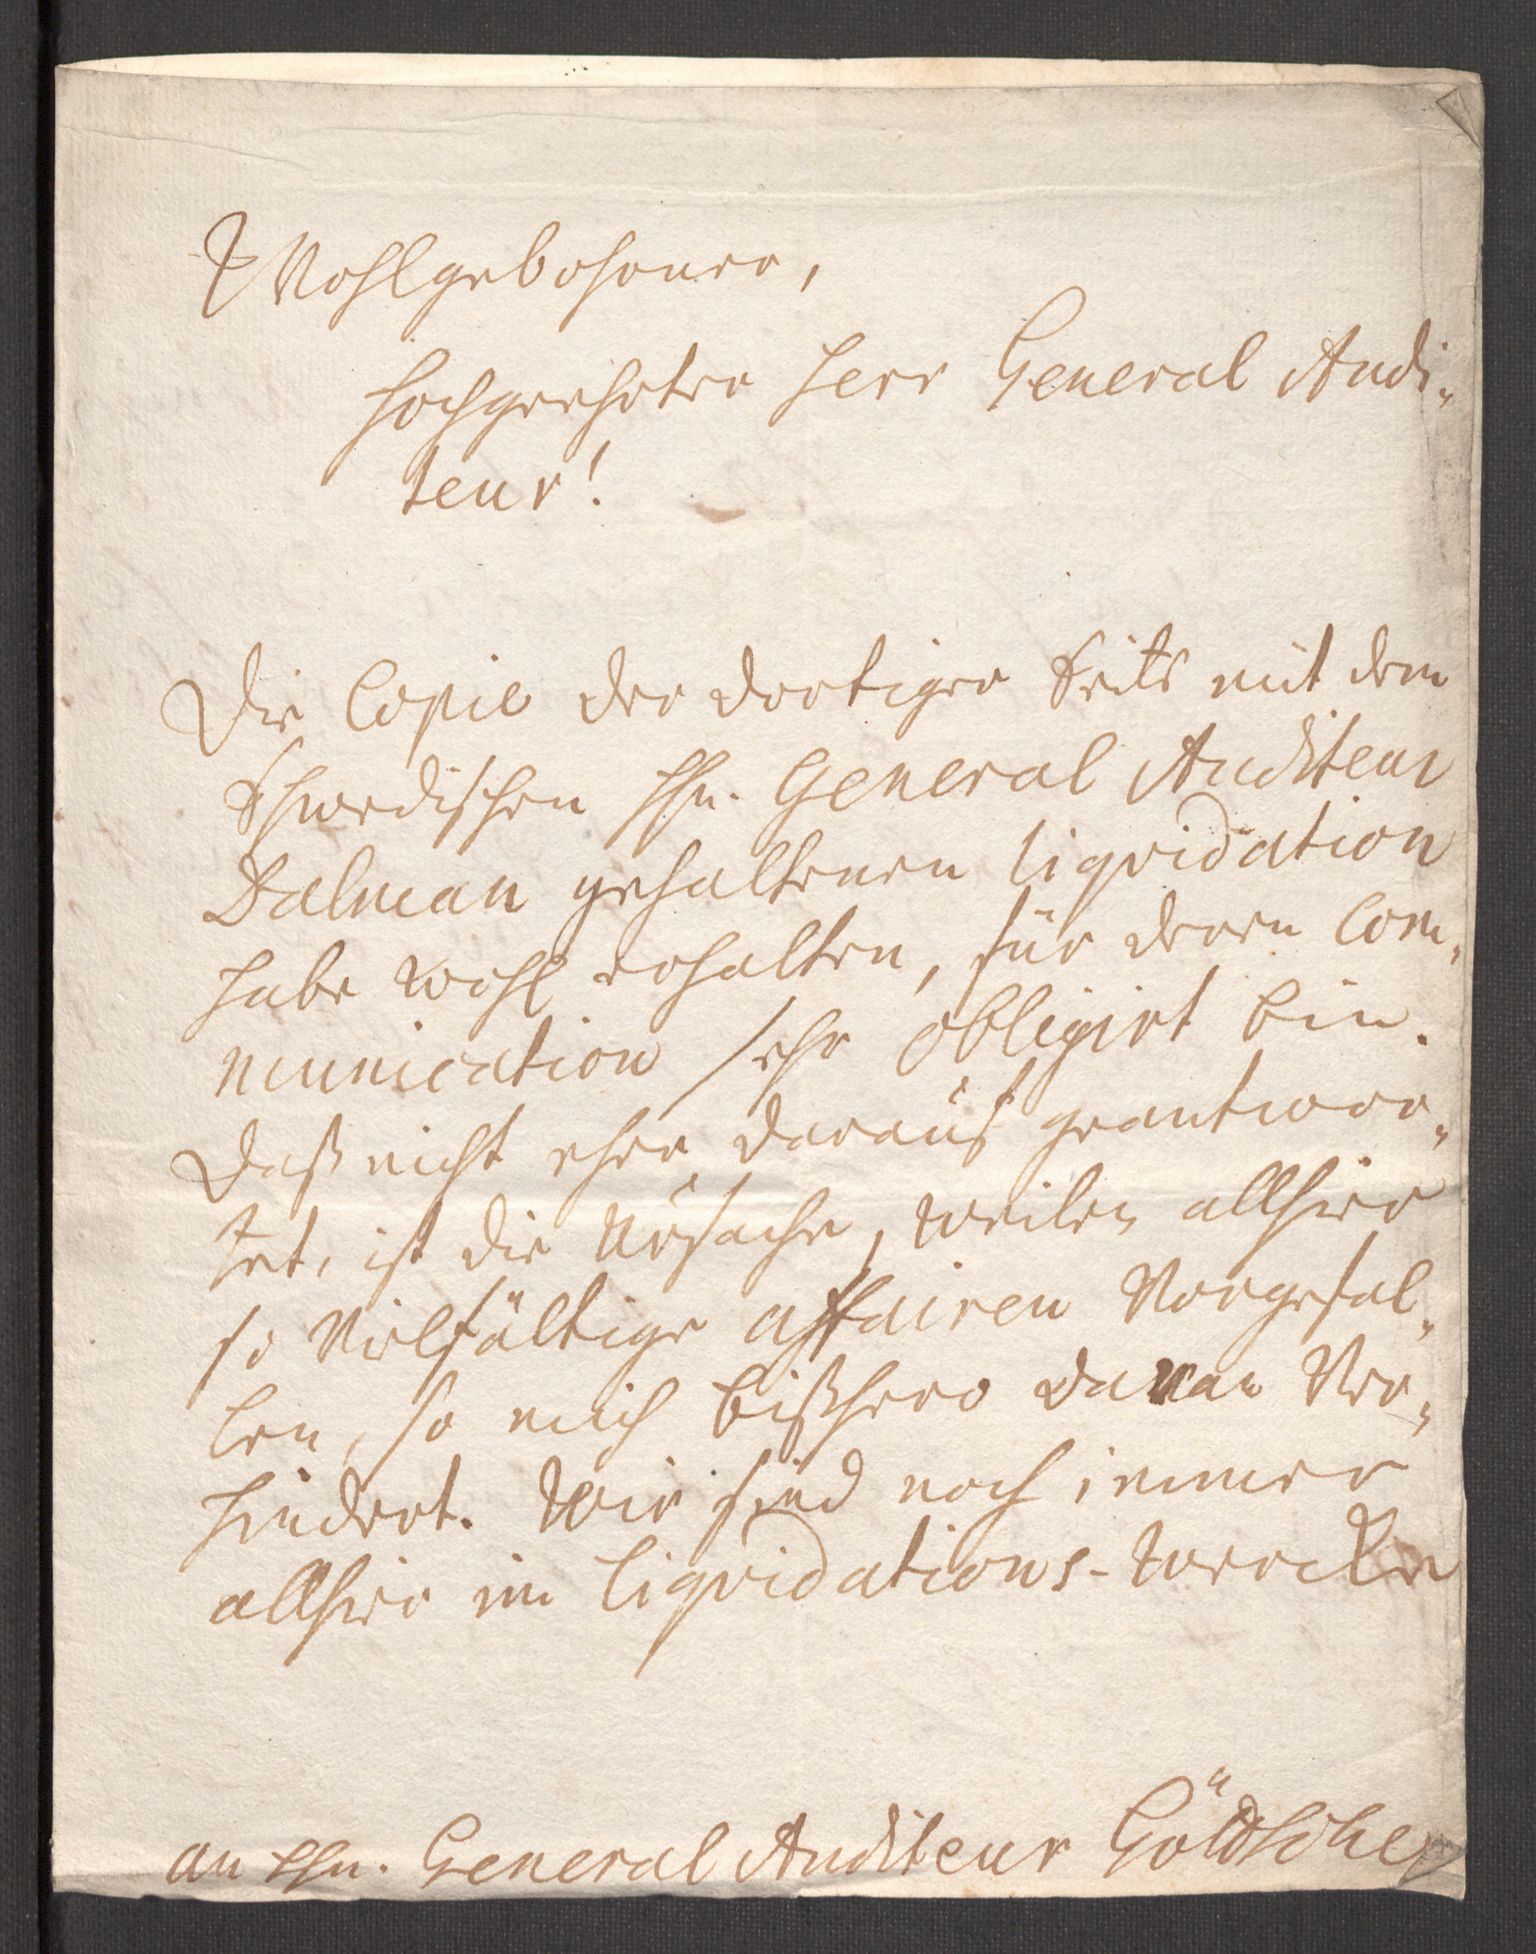 Wohlgebohrner,
Hochgeehrter Herr General Audi-
teur!
Die Copie der dortiger Seits mit dem
Schwedischen Hhn. General Auditeur
Dalman gehaltenen liqvidation
habe wohl erhalten, für deren Com-
munication sehr obligirt bin.
Daß nicht eher darauf geantwor-
tet, ist die Uhrsache, weilen allhier
so vielfältige affairen vorgefal-
len, so mich bißhero daran ver-
hindert. Wir sind noch immer
allhier im liqvidations-wercke
an Hhn. General Auditeur